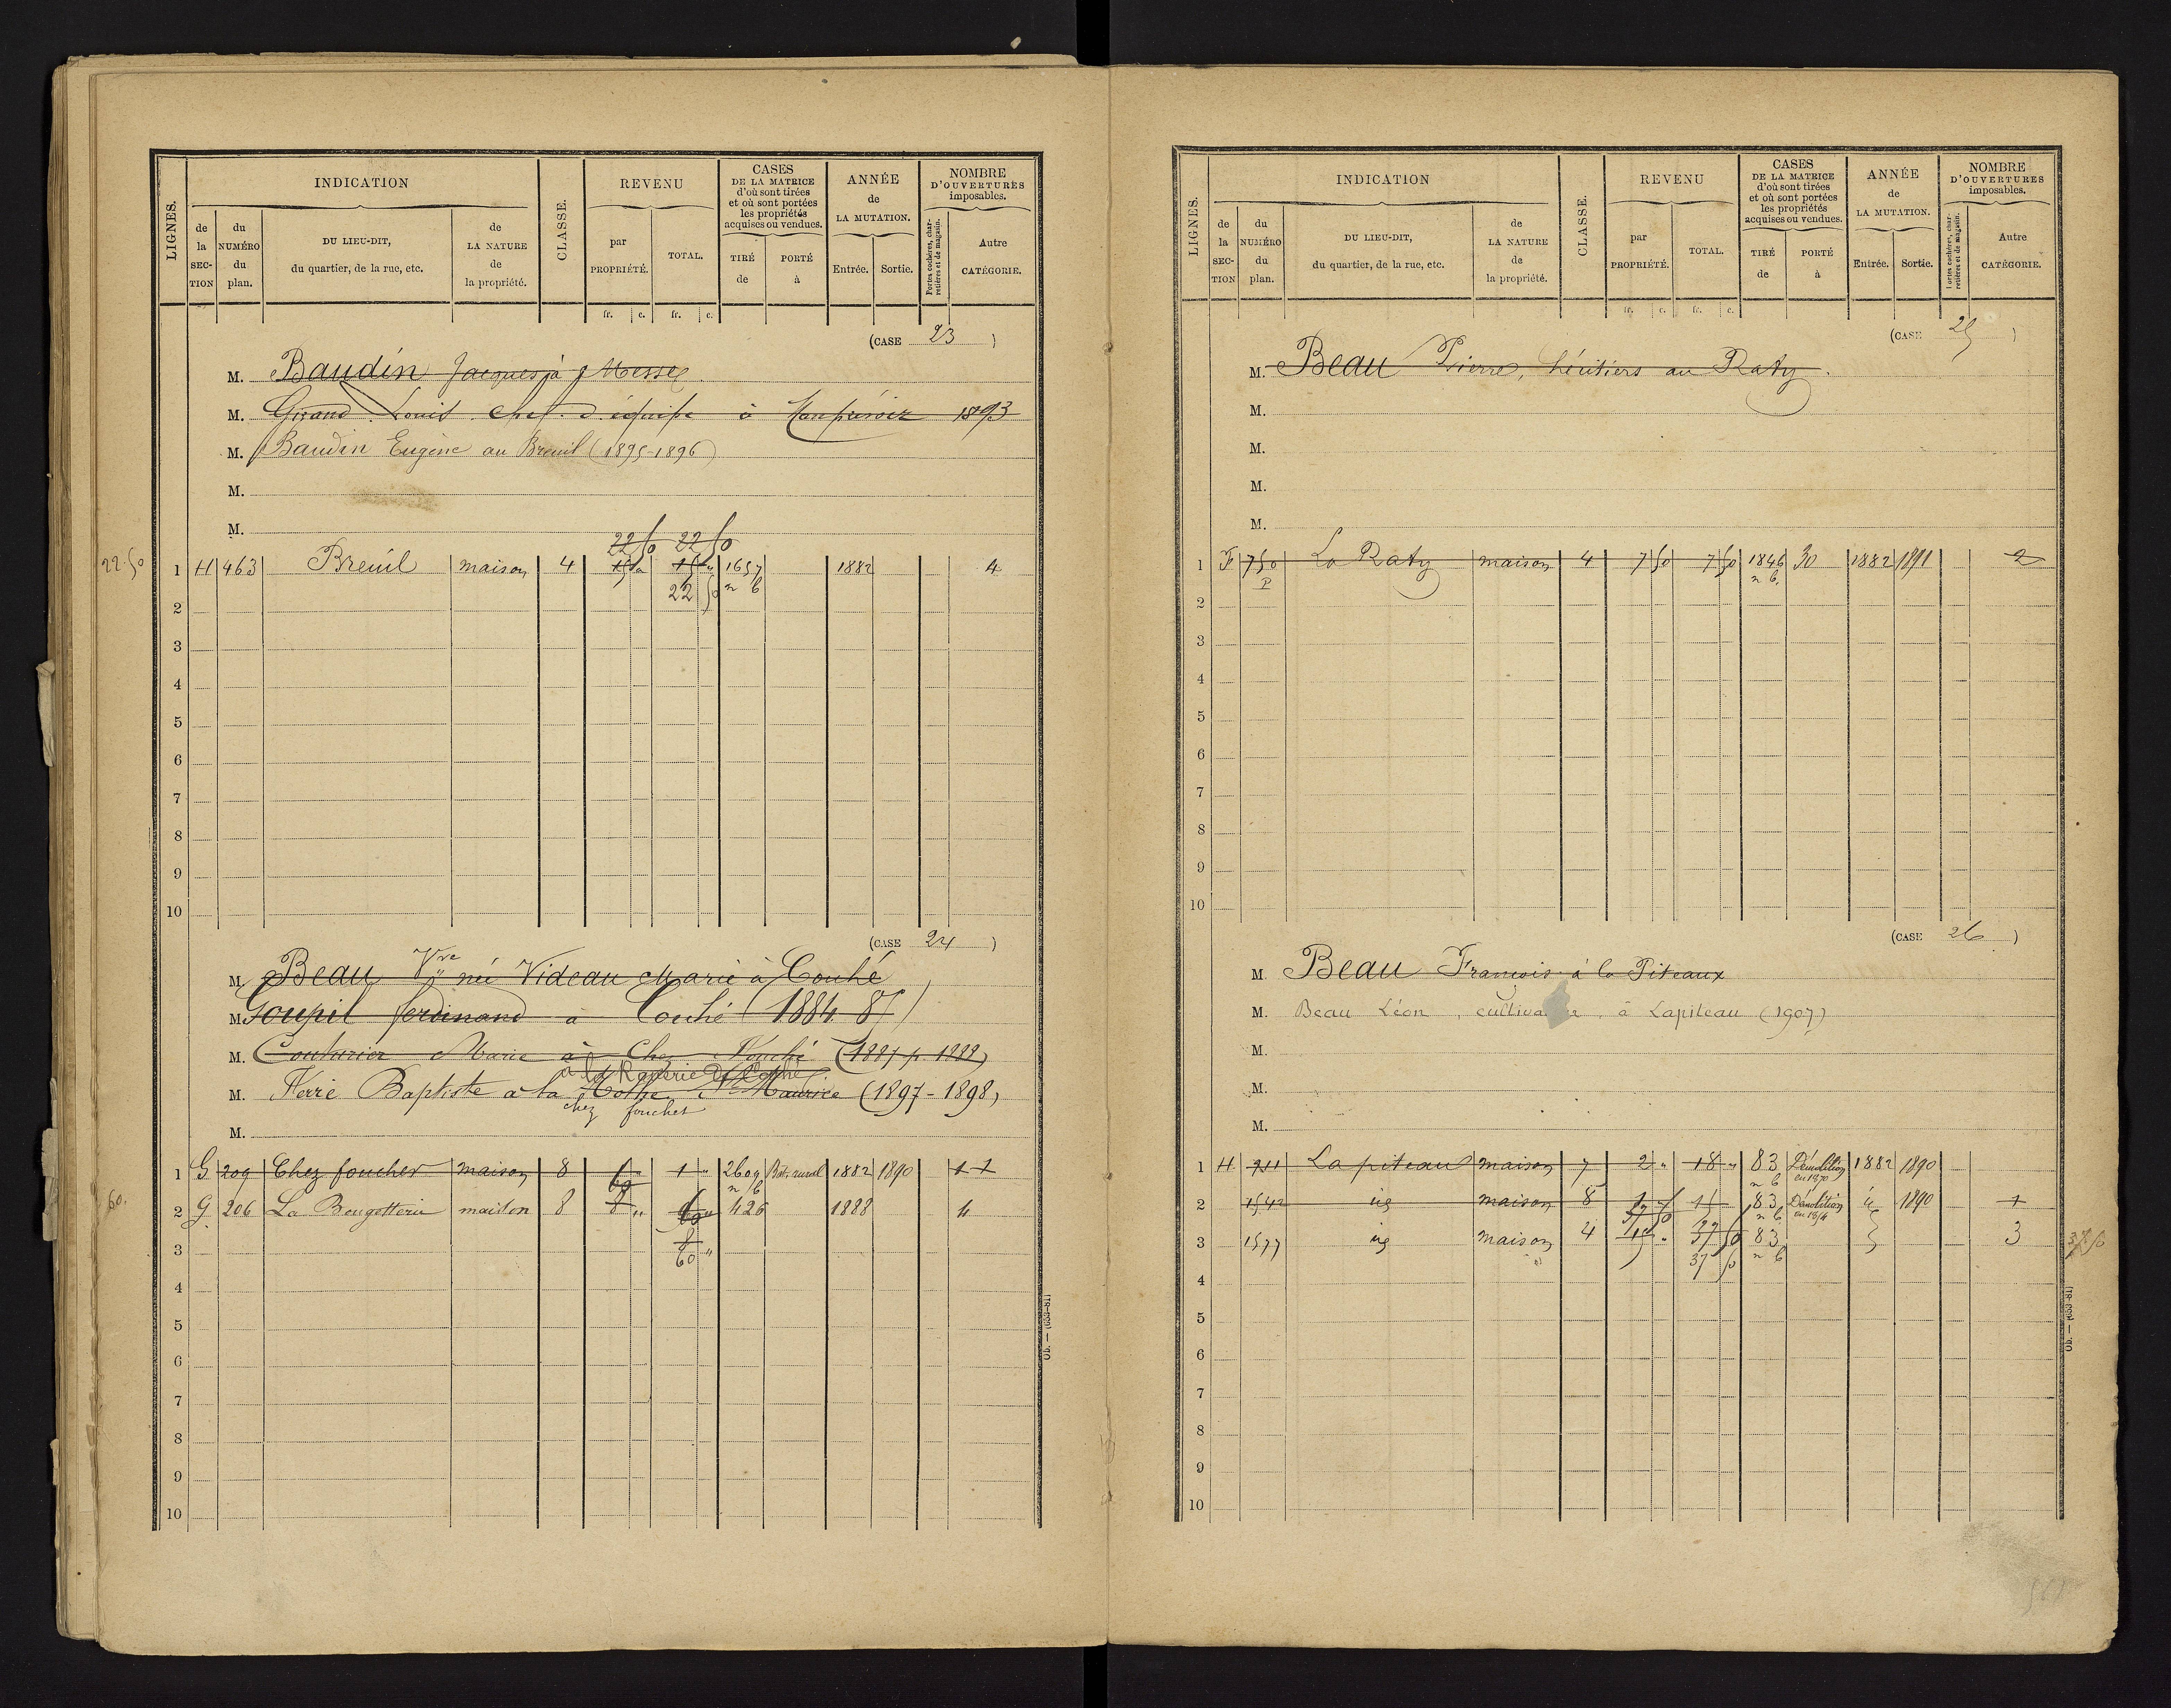 LIGNES.
INDICATION
de la SECTION
du NUMÉRO du plan.
DU LIEU-DIT, du quartier, de la rue, etc.
de LA NATURE de la propriété.
CLASSE.
REVENU
par PROPRIÉTÉ.
TOTAL.
CASES DE LA MATRICE d'où sont tirées et où sont portées les propriétés acquises ou vendues.
TIRÉ de
PORTÉ à
ANNÉE de LA MUTATION.
Entrée.
Sortie.
NOMBRE D'OUVERTURES imposables.
Portes cochères, charretières et de magasin.
Autre CATÉGORIE.
fr. c. fr. c.
(CASE 23)
M. Baudin Jacques à Messé
M. Girand Louis chef d'équipe à 1893
M. Baudin Eugène au Breuil (1895-1896)
M.
M.
22 50 22 50
22.50
1 H 463 Breuil maison 4 15 " 15 " 1657 1882 4
22 50 n b
2
3
4
5
6
7
8
9
10
(CASE 24)
M. Beau Vve née Videau Marie à Couhé
M. Goupil ferdinand à Couhé (1884 85)
M. Couturier Marie à Chez Fouché (1887 p. 1888)
à la Raderie de Couhé
M. Ferré Baptiste à la Mothe St Maurice (1897-1898)
chez foucher
M.
1 G 209 Chez foucher maison 8 1 " 1 " 2609 Bat. rural 1882 1890 1 1
60 n b
60.
2 G 206 La Bougetterie maison 8 8 " 60 " 426 1888 4
3 60 "
4
5
6
7
8
9
10
LIGNES.
INDICATION
de la SECTION
du NUMÉRO du plan.
DU LIEU-DIT, du quartier, de la rue, etc.
de LA NATURE de la propriété.
CLASSE.
REVENU
par PROPRIÉTÉ.
TOTAL.
CASES DE LA MATRICE d'où sont tirées et où sont portées les propriétés acquises ou vendues.
TIRÉ de
PORTÉ à
ANNÉE de LA MUTATION.
Entrée.
Sortie.
NOMBRE D'OUVERTURES imposables.
Portes cochères, charretières et de magasin.
Autre CATÉGORIE.
fr. c. fr. c.
(CASE 25)
M. Beau Pierre, héritiers au Raty.
M.
M.
M.
M.
1 F 750 La Raty maison 4 7 50 7 50 1846 30 1882 1891 2
P n b.
2
3
4
5
6
7
8
9
10
(CASE 26)
M. Beau François à la Piteaux
M. Beau Léon, à Lapiteau (1907)
M.
M.
M.
1 H 911 La piteau maison 7 2 " 18 " 83 Démolition 1882 1890
n b en 1870
2 1542 id maison 8 1 " 15 83 Démolition id 1890 1
37 50 n b
3 1577 id maison 4 15 " 37 50 83 3
37 50 n b
37 50
4
5
6
7
8
9
10